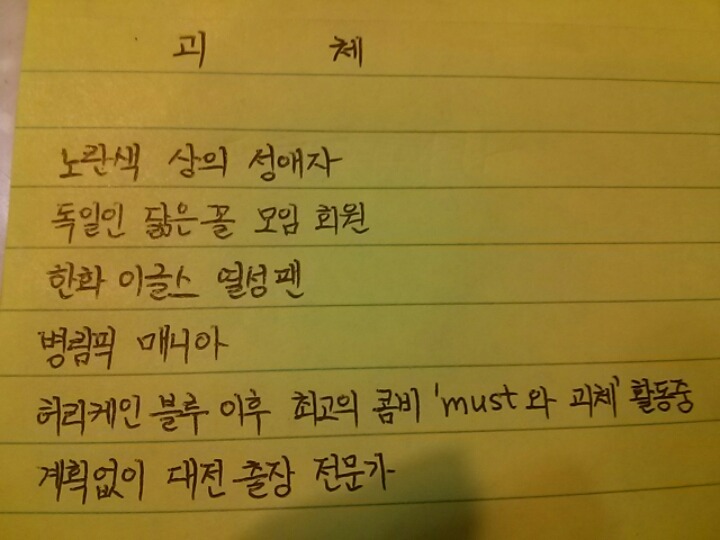 괴 체
노란색 상의 성애자
독일인 닮은꼴 모임 회원
한화 이글스 열성팬
병림픽 매니아
허리케인 블루 이후 최고의 콤비 'must와 괴체' 활동중
계획없이 대전 출장 전문가